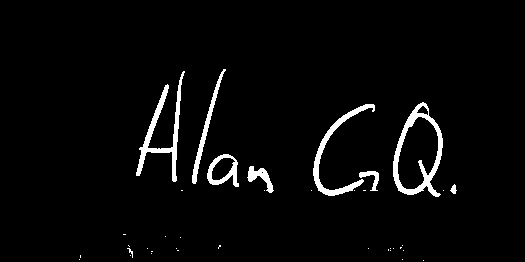 Alan G Q.